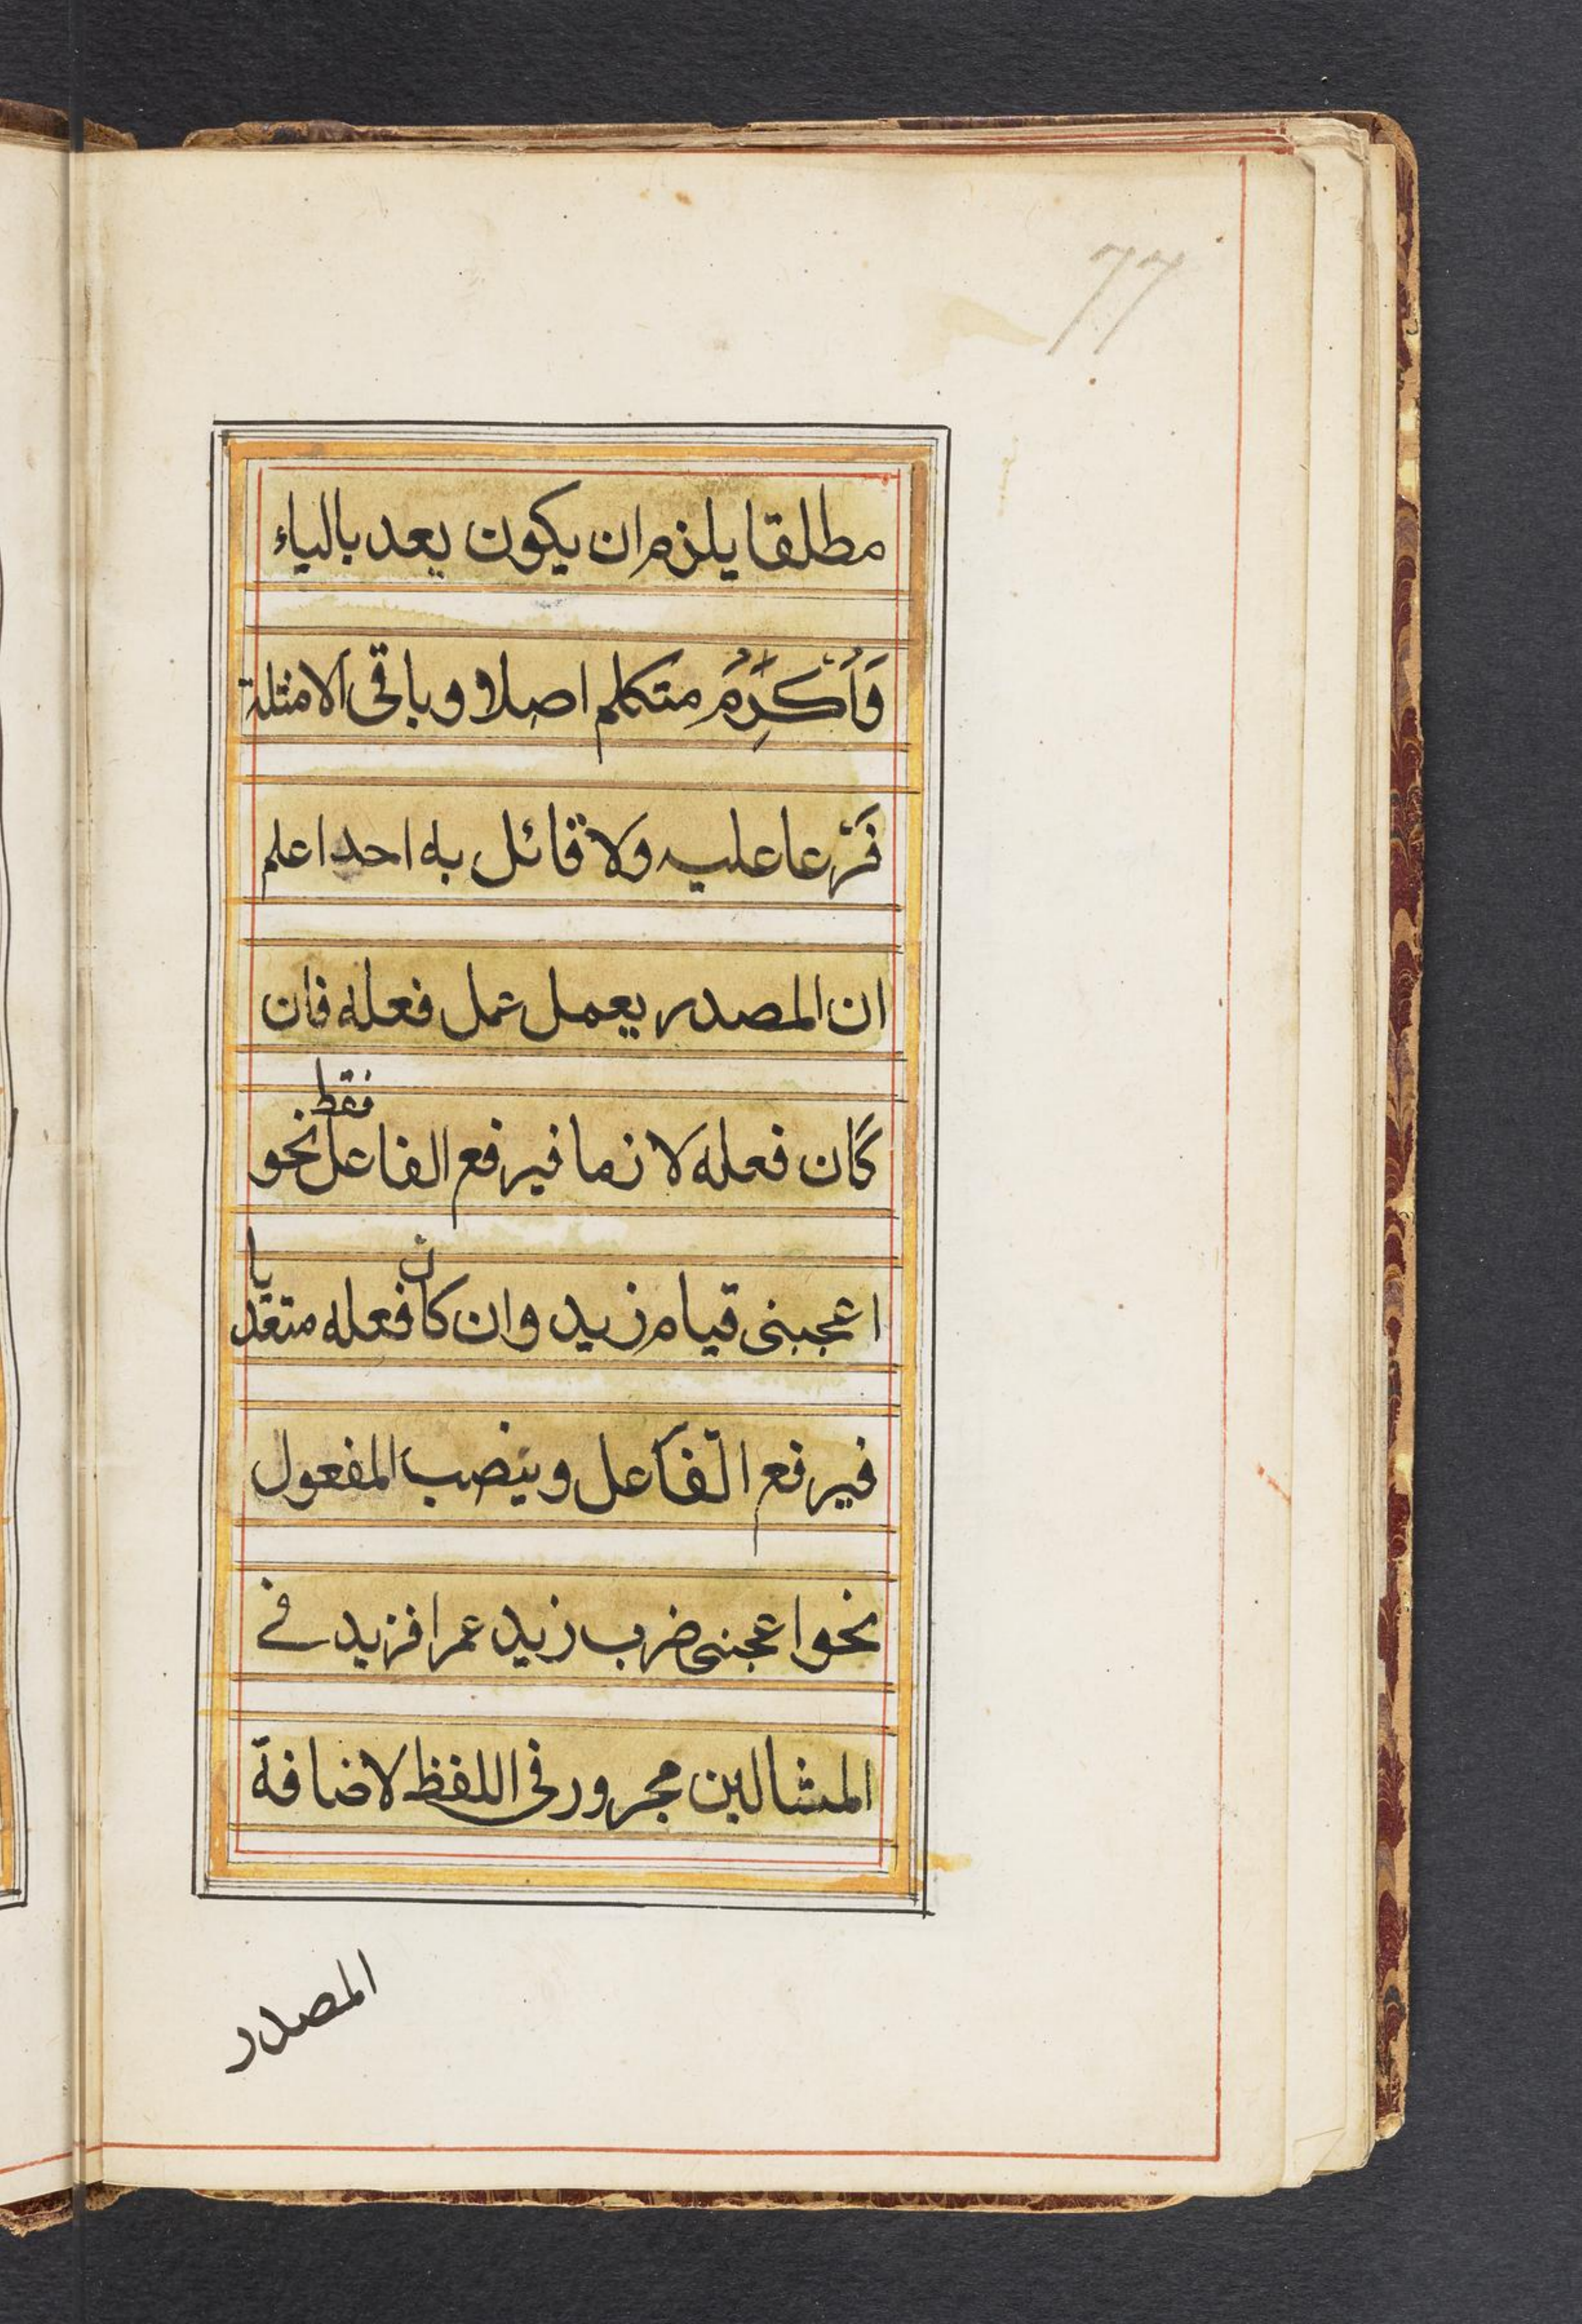 77
مطلقا يلزم ان يكون يعد بالياء
وَاُكْرِمُ متكلم اصلا و باقى الامثلة
فَرْعا عليه وَلا قائل به احد اعلم
ان المصدر يعمل عمل فعله فان
كَان فعله لا زما فيرفع الفاعل فقط نحو
اعجبنى قيام زيد وان كان فعله متعديا
فيرفع الفَاعل وينصب المفعول
نحو اعجبنى ضرب زيد عمرا فزيد فے
المثالين مجرور فى اللفظ لاضافة
المصدر